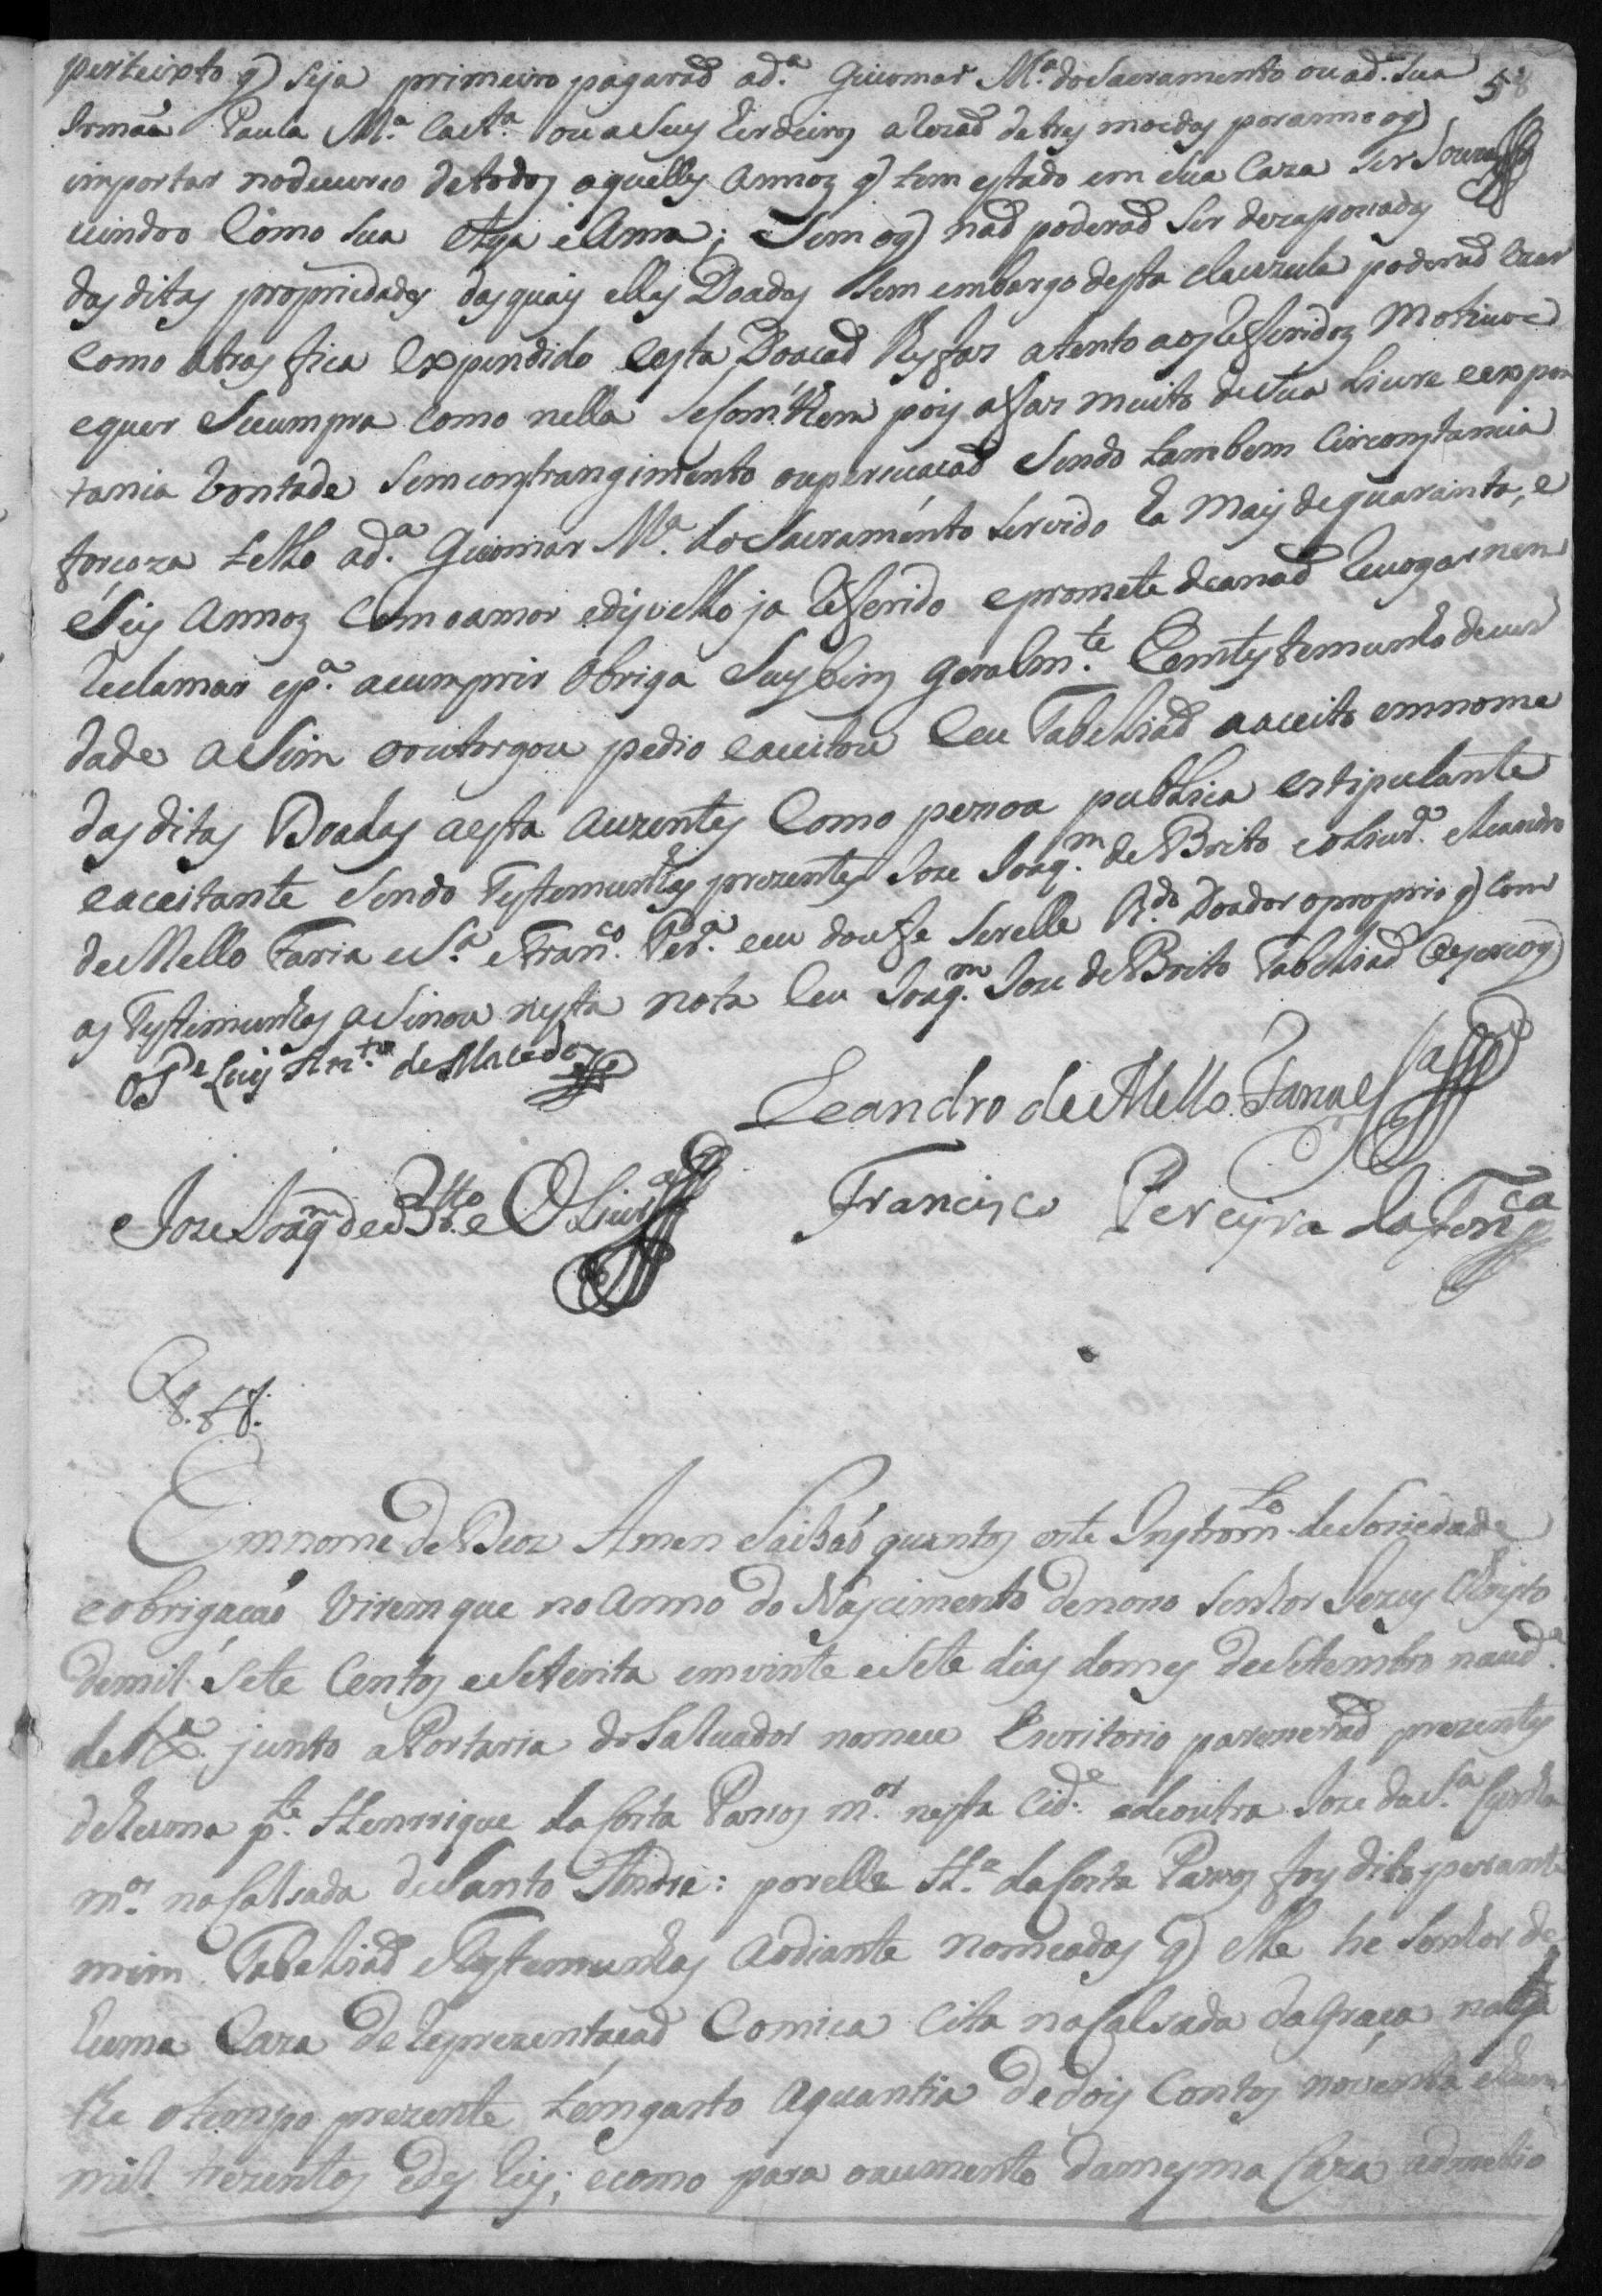 pertexto q) seja primeiro pagarad ad.ª Guiomar M.ª do Sacramento ou ad.ª Sua
58
Irmãa Paula M.ª Caet.ª ou a Seus Erdeiros a Rezad de tres moedas por anno o q)
importar no decurço de todos aquelles Annos q) tem estado em sua Caza Ser
vindoo Como Sua Aya e Ama; Sem o q) nad poderad Ser dezaposados
das ditas propriedades das quais ellas Doadas Sem embargo desta clauzula poderad Uzar
Como atras fica Expendido e esta Doacad lhes faz atento aos Refferidos Motivos
e quer Se cumpra Como nella se Comthem pois a faz muito de Sua Livre e expon
tania Vontade Sem constrangimento ou persuacad Sendo tambem Circonstancia
forcoza tello ad.ª Guiomar M.ª do Sacramento Servido ha mais de quarenta, e
Seis Annos Com o amor e disvello ja Refferido e promete de a nad Revogar nem
Reclamar e p.ª a cumprir Obriga Seus bens geralm.te Em testemunho de ver
dade aSim o outorgou pedio e aceitou e eu Tabeliad o aceito em nome
das ditas Doadas a esta Auzentes Como pessoa publica estipulante
e aceitante Sendo Testemunhas prezentes Joze Joaq.m de Brito e Oliur.ª e Leandro
de Mello Faria e S.ª e Fran.co Per.ª e eu dou fe Ser elle R.do Doador o proprio q) Com
as Testemunhas aSinou nesta nota e eu Joaq.m Joze de Brito Tabeliad o escrevy
O P.e Luis Ant.o de Macedo
Leandro de Mello Faria e S.ª
Joze Joaq.m de Br.to e Oliur.ª
Francisco Pereyra da Fon.ca
Em nome de Deos Amen Saibão quantos este Instrom.to de Sociedade
e obrigacão Virem que no Anno do Nascimento de noso Senhor Jezus Christo
de mil Sete Centos e Setenta em vinte e Sete dias do mes de Setembro na cid.e
de Lx.ª junto a Portaria do Salvador no meu Escritorio parecerad prezentes
de huma p.te Henrrique da Costa Passos m.or nesta Cid.e e de outra Joze da S.ª Cunha
m.or na Calsada de Santo Andre: por elle H.e da Costa Passos foy dito perante
mim Tabeliad e Testemunhas ao diante nomeadas q) elle he Senhor de
huma Caza de Reprezentacad Comica Cita na Calsada da Graça na q.l
the o tempo prezente tem gasto a quantia de dois Contos noventa e hum
mil trezentos e des Reis; e como para o aumento da mesma Caza admetio